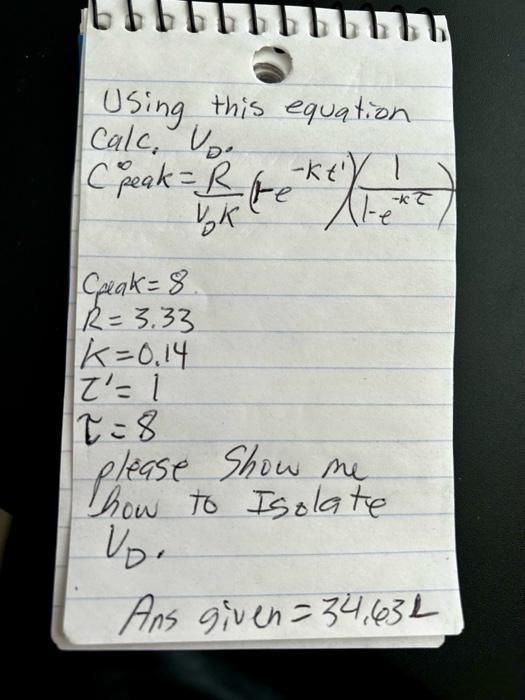 Using this equation
Calc. V_D.
C^∞ peak = R/(V_D K) (1-e^-Kt')(1/(1-e^-Kτ))
Cpeak = 8
R = 3.33
K = 0.14
τ' = 1
τ = 8
please Show me
how to Isolate
V_D.
Ans given = 34.63 L